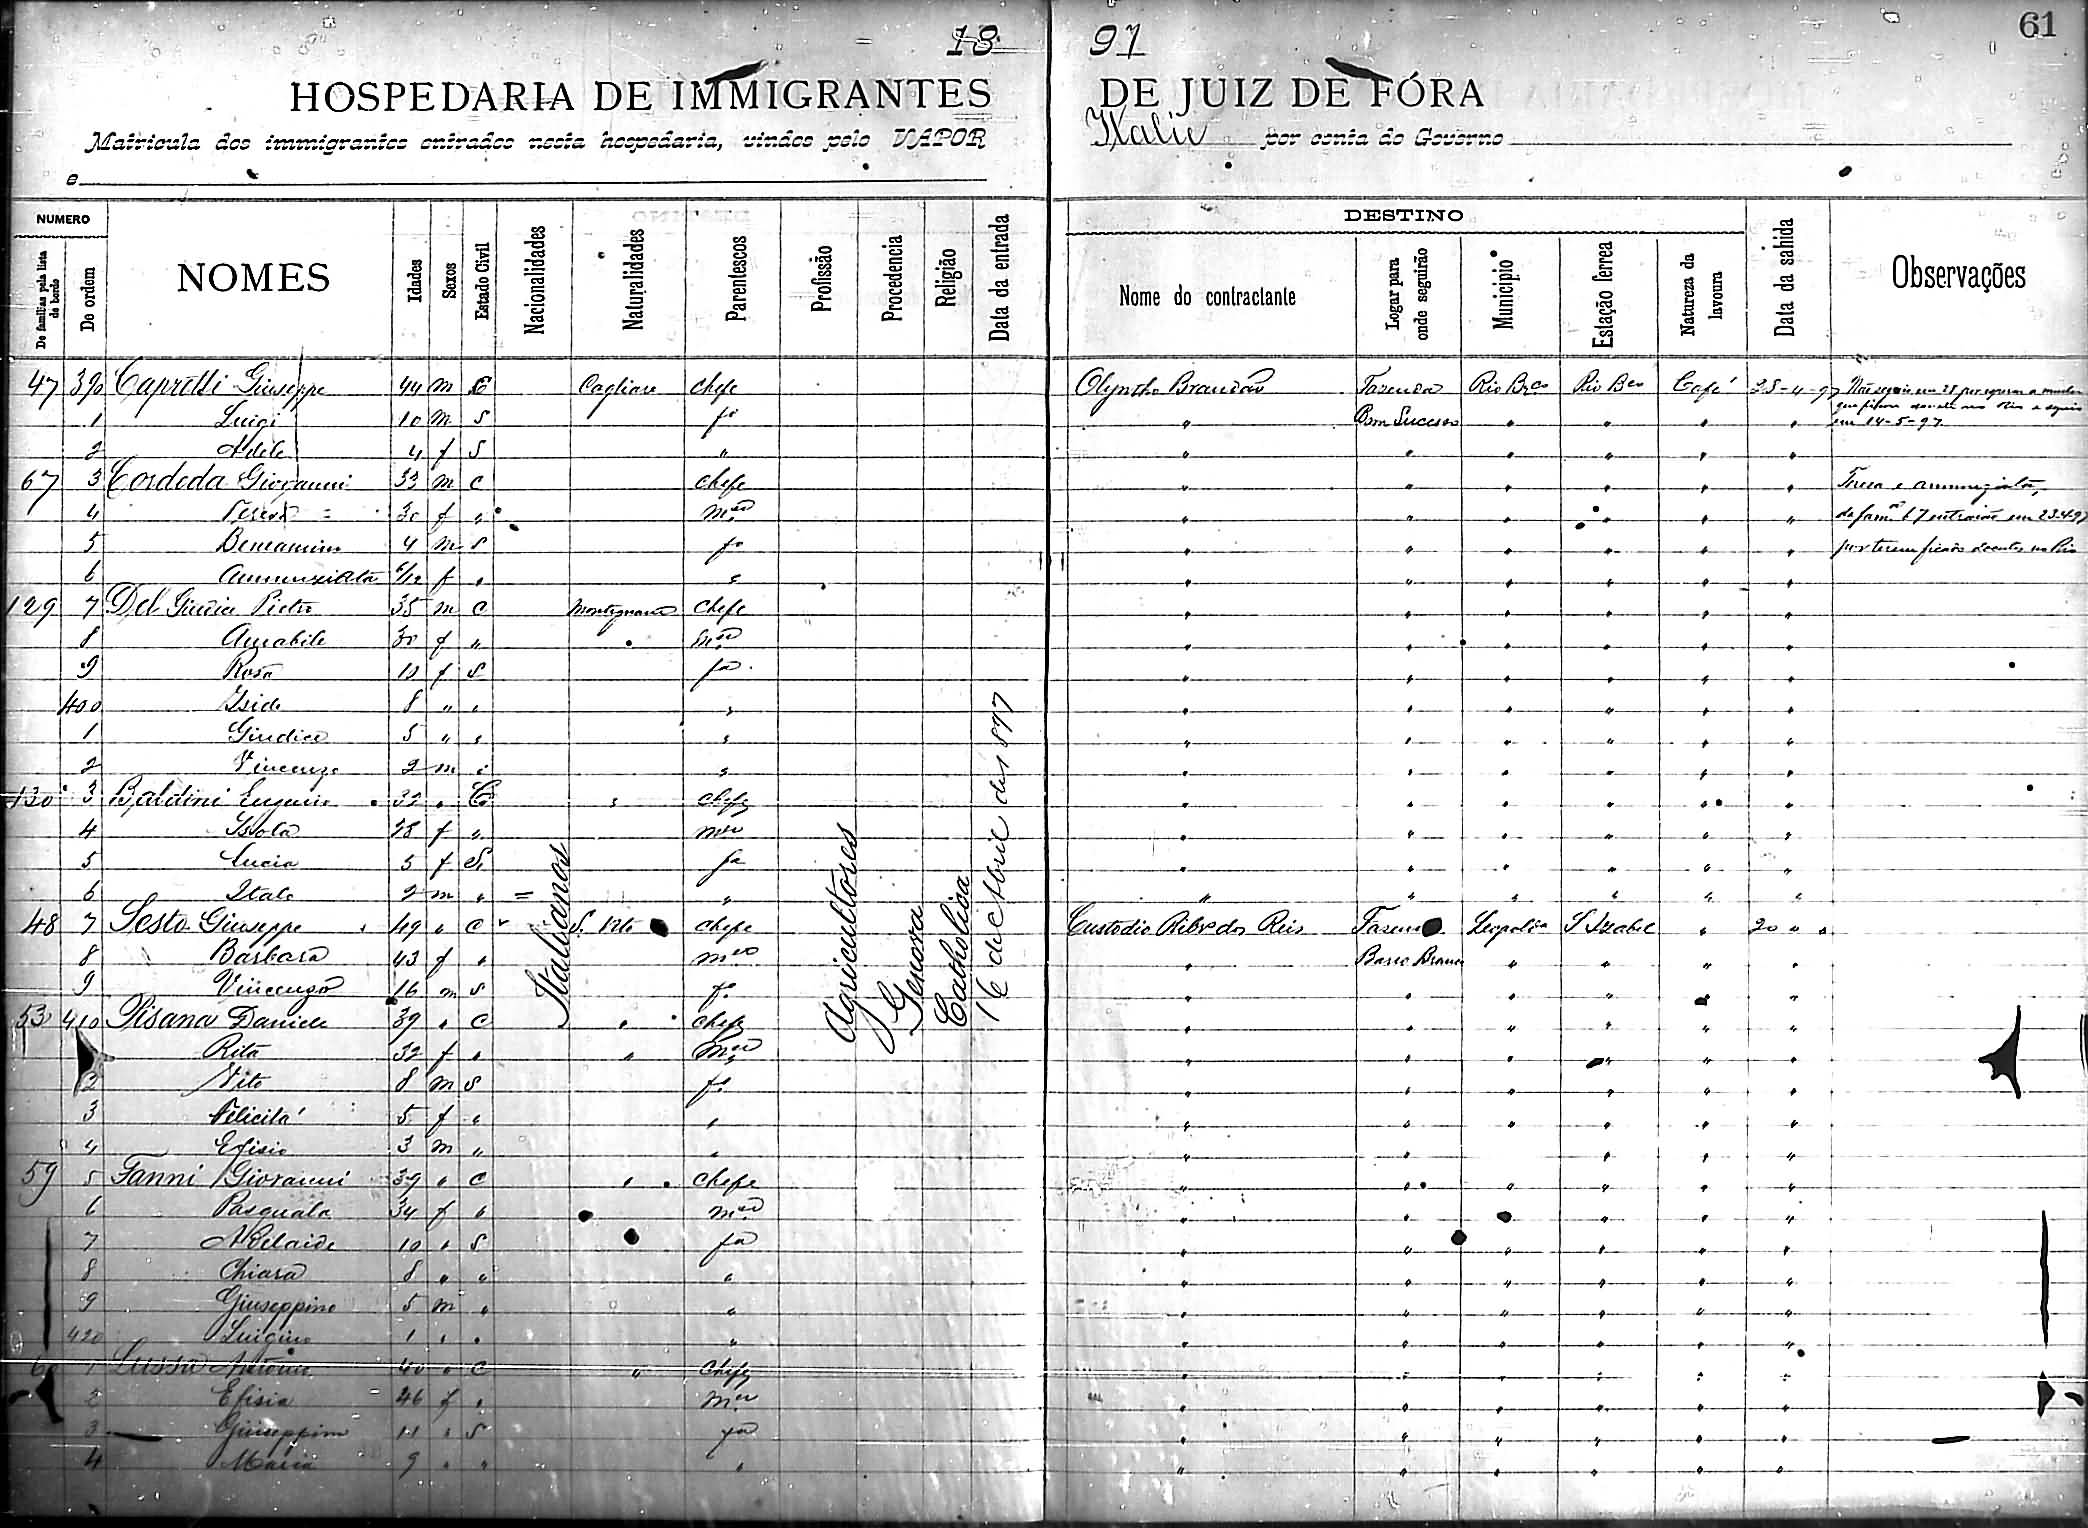 1897 61
HOSPEDARIA DE IMMIGRANTES DE JUIZ DE FÓRA
Matricula dos immigrantes entrados nesta hospedaria, vindos pelo VAPOR Italie por conta do Governo
e
NUMERO DESTINO
De familias pela lista de bordo De ordem NOMES Idades Sexos Estado Civil Nacionalidades Naturalidades Parentescos Profissão Procedencia Religião Data da entrada Nome do contractante Logar para onde seguirão Municipio Estação ferrea Natureza da lavoura Data da sahida Observações
47 390 Capretti Giuseppe 44 m C Cagliare chefe Olyntho Brandão Fazenda Rio Bco Rio Bco Café 25-4-97
1 Luigi 10 m S fo " Bom Sucesso " " " " em 14-5-97
2 Adele 4 f S " " " " " " "
67 3 Cordeda Giovanni 33 m C chefe " " " " " "
4 Teresa 30 f " mer " " " " " " da fama 67 entrarão em 23-4-97
5 Beneamino 4 m S fo " " " " " " por terem ficado doentes no Rio
6 Annunziata 6/12 f " " " " " " " "
129 7 Del Giudice Pietro 35 m C Montegnana chefe " " " " " "
8 Amabile 30 f " " mer " " " " " "
9 Rosa 10 f S fa " " " " " "
400 Iside 8 " " " " " " " " "
1 Giudice 5 " " " " " " " " "
2 Vincenzo 2 m " " " " " " " "
130 3 Baldini Eugenio 32 " C " chefe " " " " " "
4 Isola 28 f " mer " " " " " "
5 Lucia 5 f S fa " " " " " "
6 Italo 2 m " = " " " " " " "
48 7 Sesto Giuseppe 49 " C S. Vito chefe Custodio Ribr dos Reis Fazenda Leopoldna S Izabel " 20 " "
8 Barbara 43 f " mer " Barro Branco " " " "
9 Vincenzo 16 m S fo " " " " " "
53 410 Pisana Daniele 39 " C " chefe " " " " " "
Rita 32 f " " mer " " " " " "
2 Vito 8 m S fo " " " " " "
3 Felicita' 5 f " " " " " " " "
4 Efisio 3 m " " " " " "
59 5 Fanni Giovanni 39 " C " chefe " " " " " "
6 Pasquala 34 f " mer " " " " "
7 Adelaide 10 " S fa " " " " " "
8 Chiara 8 " " " " " " " " "
9 Giuseppino 5 m " " " " " " " "
420 Luigino 1 " " " " " " " " "
1 Lussu Antonio 40 " C " chefe " " " " " "
2 Efisia 46 f " mer " " " " " "
3 Giuseppina 11 " S fa " " " " " "
4 Maria 9 " " " " " " " " "
Italianos
Agricultores
Genova
Catholica
16 de Abril de 1897